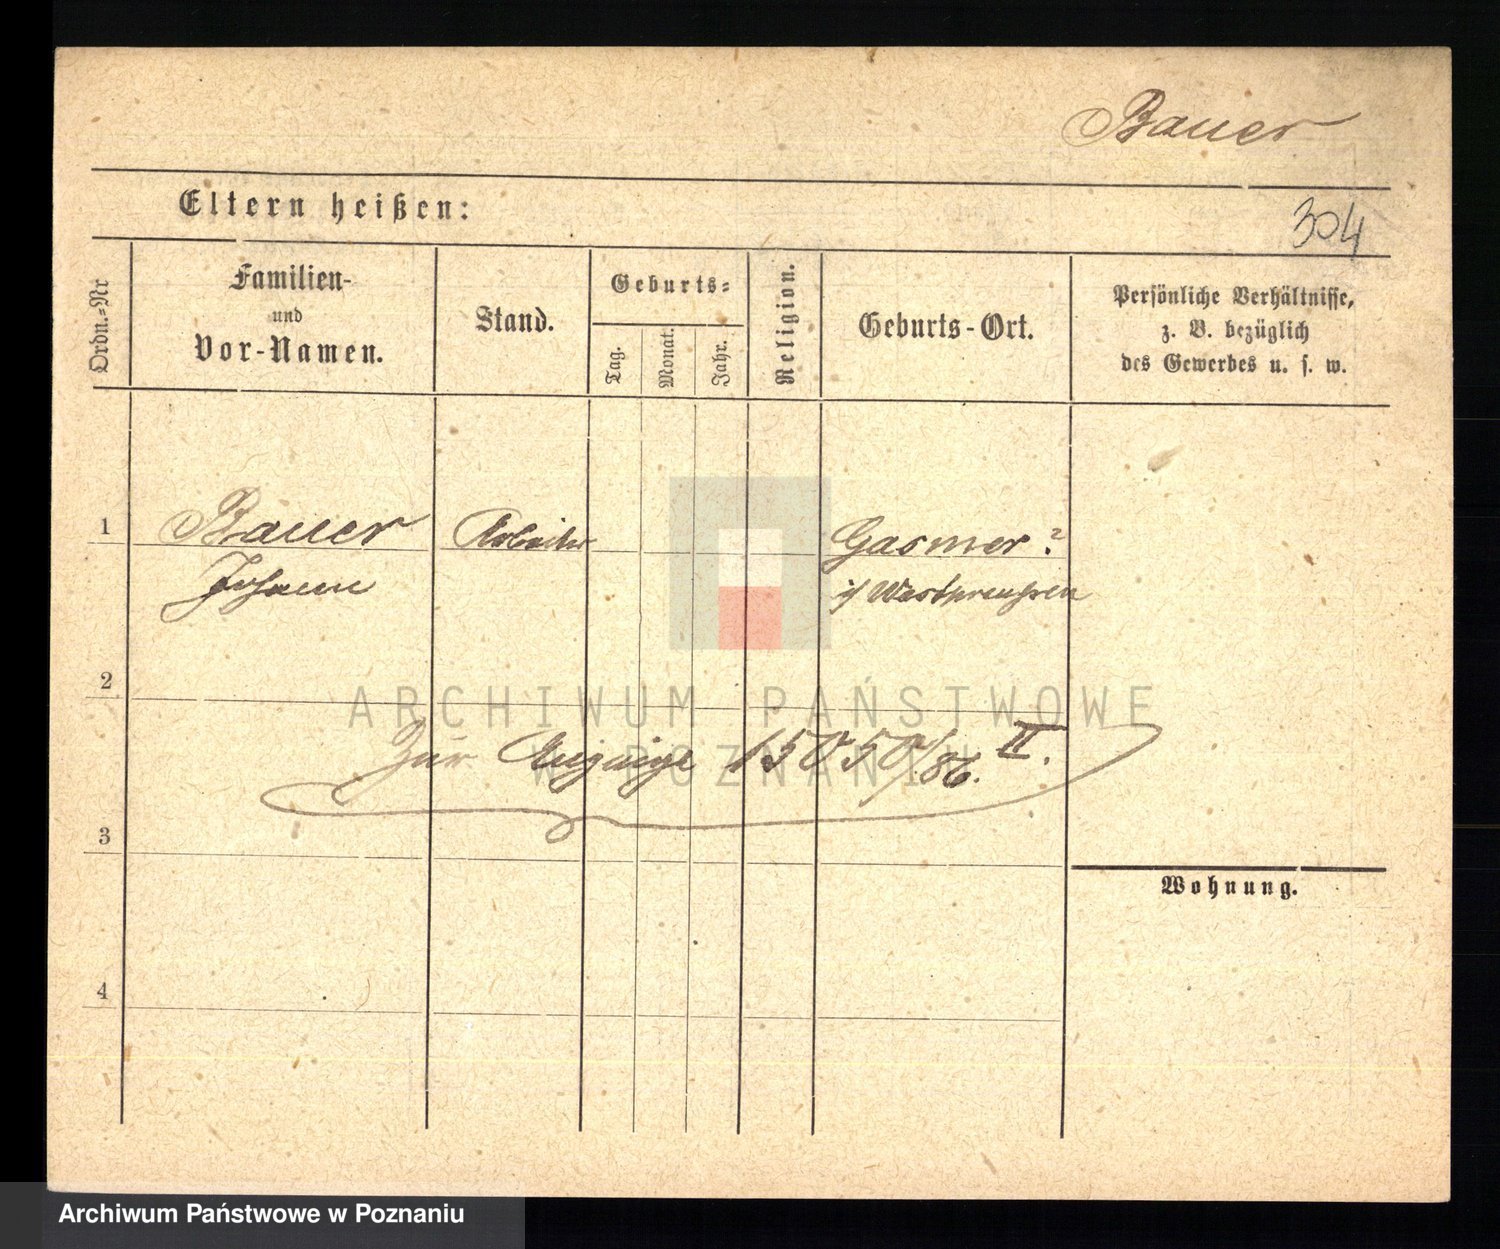 Bauer
Eltern heißen:
304
Ordn.=Nr
Familien-
und
Vor-Namen.
Stand.
Geburts=
Tag.
Monat.
Jahr.
Religion.
Geburts-Ort.
Persönliche Verhältnisse,
z. B. bezüglich
des Gewerbes u. s. w.
1
Bauer
Johann
Arbeiter
Gasmer?
i/ Westpreußen
2
ARCHIWUM PAŃSTWOWE
W POZNANIU
Zur Anzeige 15050/86. II.
3
Wohnung.
4
Archiwum Państwowe w Poznaniu